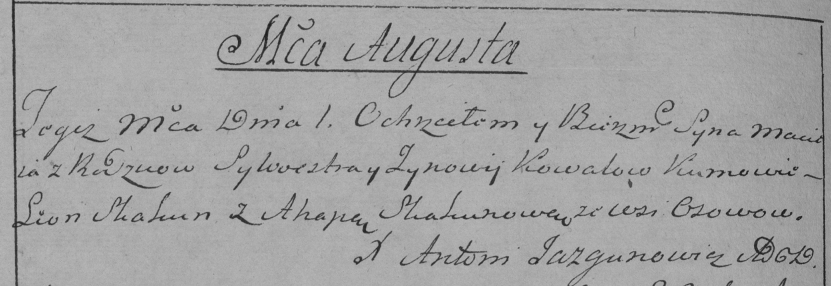 Mča Augusta
Tegiż Mča Dnia 1. Ochrzciłem y Bierzm Syna Macie
ia z Rodzicow Sylwestra y Zynowij Kowalow Kumowie
Leon Skakun z Ahapą Skakunową ze wsi Osowow.
X Antoni Jazgunowicz